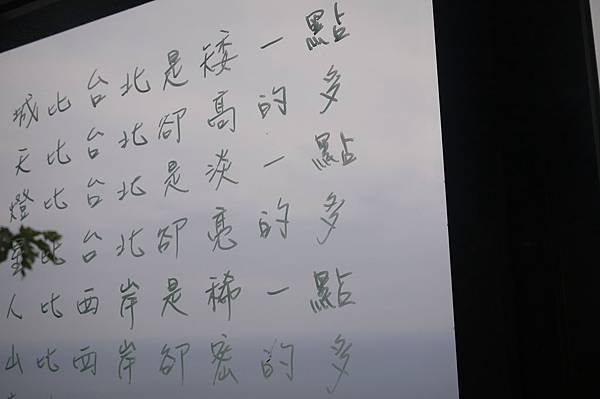 城比台北是矮一點
天比台北卻高的多
燈比台北是淡一點
星比台北卻亮的多
人比西岸是稀一點
山比西岸卻密的多